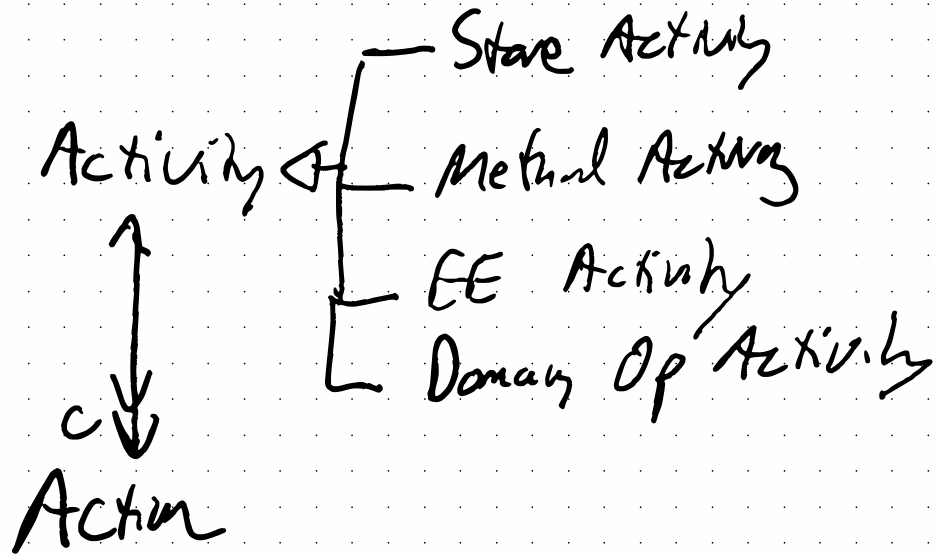 State Activity
Activity
Method Activity
EE Activity
Domain Op Activity
C
Action